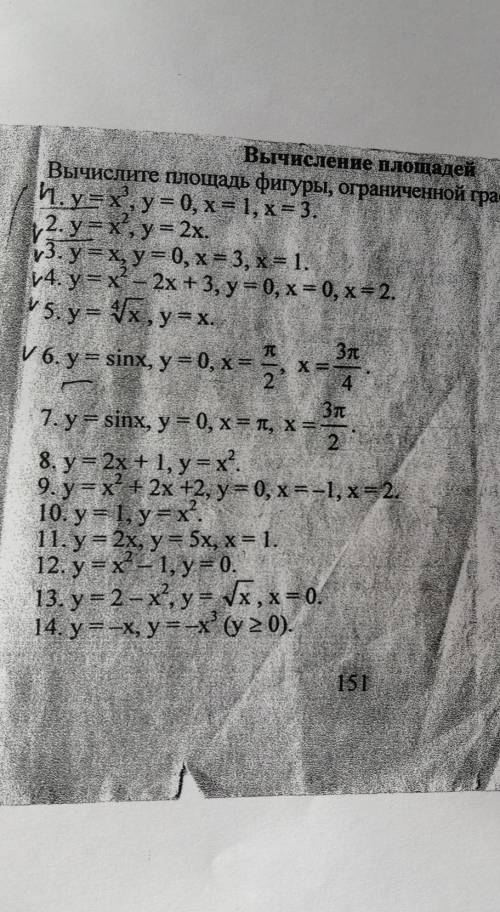 Вычисление площадей
Вычислите площадь фигуры, ограниченной
1. y = x³, y = 0, x = 1, x = 3.
2. y = x², y = 2x.
3. y = x, y = 0, x = 3, x = 1.
4. y = x² – 2x + 3, y = 0, x = 0, x = 2.
5. y = ∜x, y = x.
6. y = sinx, y = 0, x = π/2, x = 3π/4.
7. y = sinx, y = 0, x = π, x = 3π/2.
8. y = 2x + 1, y = x².
9. y = x² + 2x +2, y = 0, x = –1, x = 2.
10. y = 1, y = x².
11. y = 2x, y = 5x, x = 1.
12. y = x² – 1, y = 0.
13. y = 2 – x², y = √x, x = 0.
14. y = –x, y = –x³ (y ≥ 0).
151